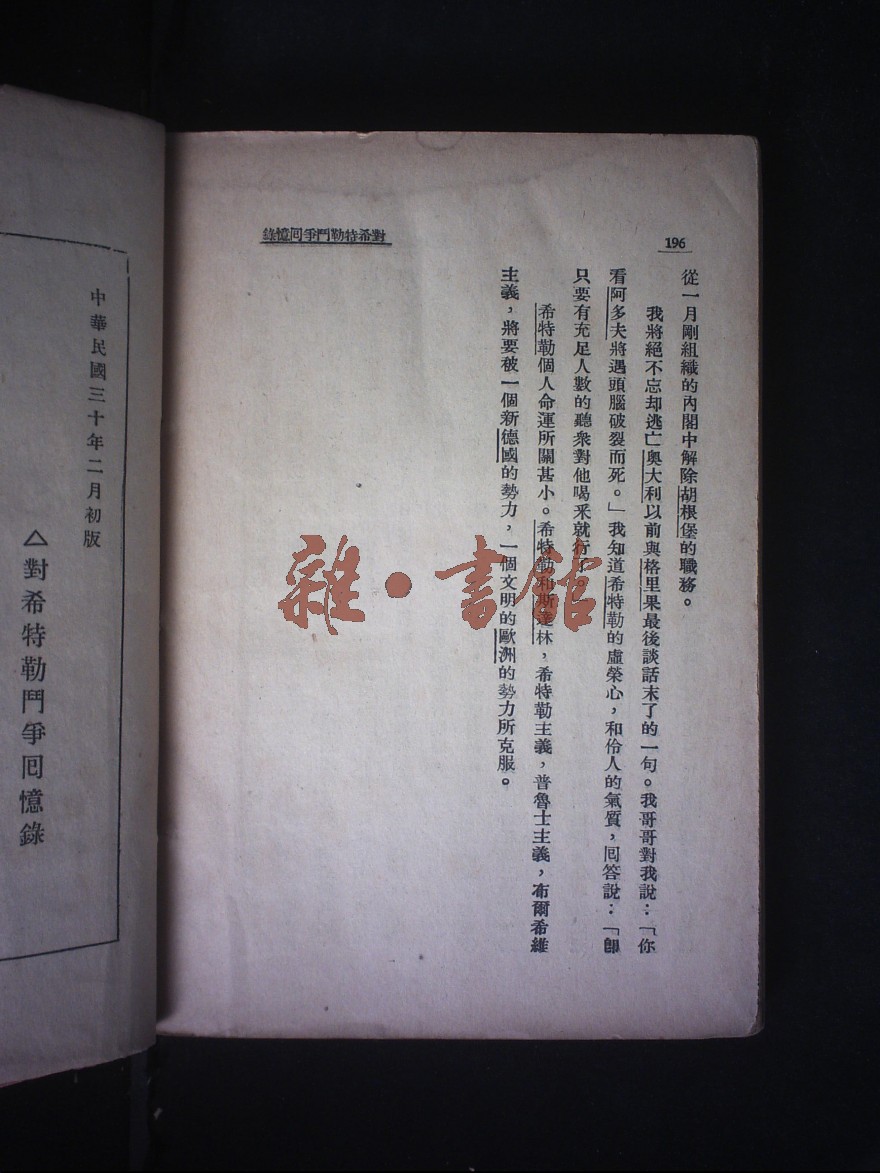 196
對希特勒鬥爭囘憶錄
從一月剛組織的內閣中解除胡根堡的職務。
我將絕不忘却逃亡奧大利以前與格里果最後談話末了的一句。我哥哥對我說：「你
看阿多夫將遇頭腦破裂而死。」我知道希特勒的虛榮心，和伶人的氣質，囘答說：「卽
只要有充足人數的聽衆對他喝釆就行了。」
希特勒個人命運所關甚小。希特勒和斯達林，希特勒主義，普魯士主義，布爾希維
主義，將要被一個新德國的勢力，一個文明的歐洲的勢力所克服。
中華民國三十年二月初版
△對希特勒鬥爭囘憶錄
雜·書館